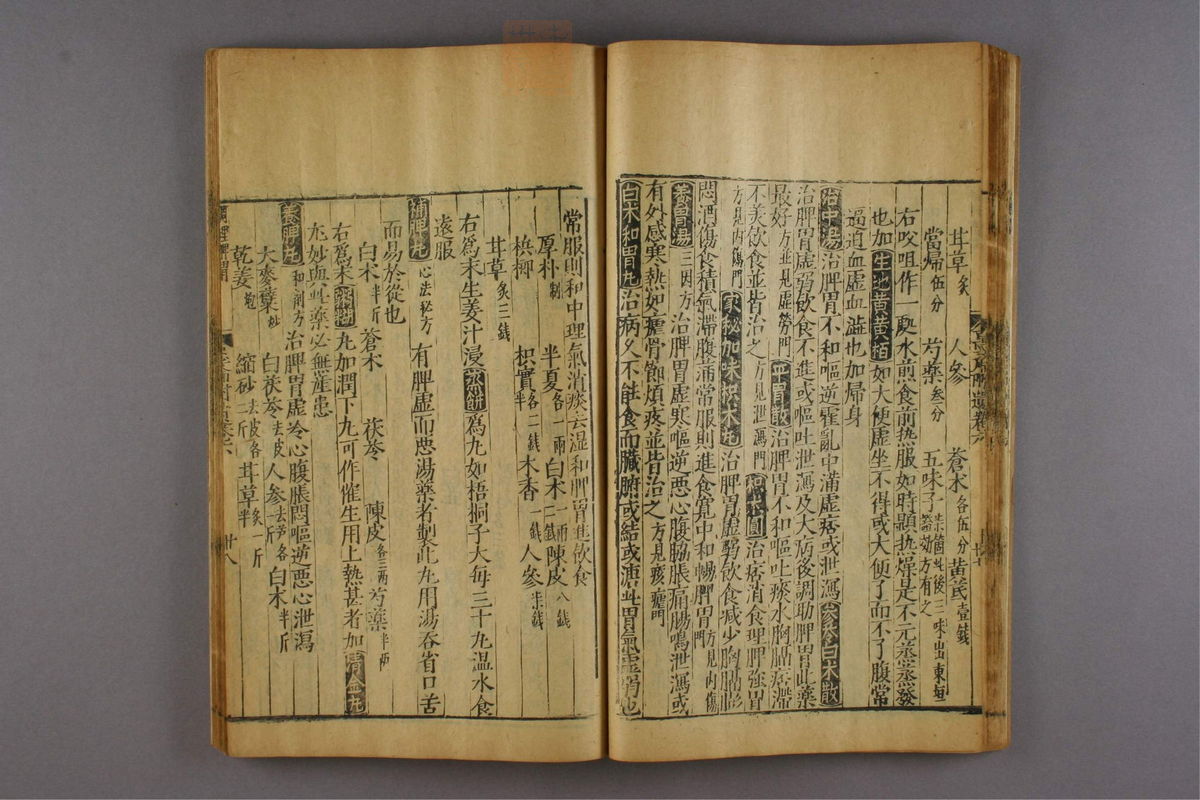 甘草炙　人參　蒼朮各伍分　黃芪壹錢
當歸伍分　芍藥叁分　五味子
右㕮咀作一服水煎食前熱服如時顯熱燥是下元蒸蒸發
也加生地黃黃栢如大便虛坐不得或大便了而不了腹常
逼迫血虛血澁也加歸身
治中湯治脾胃不和嘔逆霍亂中滿虛痞或泄瀉參苓白朮散
治脾胃虛弱飲食不進或嘔吐泄瀉及大病後調助脾胃此藥
最好方並見虛勞門平胃散治脾胃不和嘔吐痰水胸膈痞滯
不美飲食並皆治之方見泄瀉門枳朮圓治痞消食理脾強胃
方見內傷門家秘加味枳朮丸治脾胃虛弱飲食減少胸膈膨
悶酒傷食積氣滯腹滿常服則進食寬中和暢脾胃方見內傷門
養胃湯三因方治脾胃虛寒嘔逆惡心腹脇脹痛腸鳴泄瀉或
有外感寒熱如瘧骨節煩疼並皆治之方見痎瘧門
白朮和胃丸治病久不能食而臟腑或結或溏此胃氣虛弱也
常服則和中理氣消痰去濕和脾胃進飲食
厚朴制　半夏各一兩　白朮一兩二錢　陳皮八錢
梹榔　枳實各二錢半　木香一錢　人參
甘草炙三錢
右爲末生姜汁浸蒸餠爲丸如梧桐子大每三十丸溫水食
遠服
補脾丸心法秘方　有脾虛而惡湯藥者製此丸用湯吞省口苦
而易於從也
白朮半斤　蒼朮　茯苓　陳皮各三兩　芍藥半兩
右爲末粥糊丸加潤下丸可作催生用上熱甚者加清金丸
尤妙與此藥必無產患
養脾丸和劑方治脾胃虛冷心腹脹悶嘔逆惡心泄瀉
大麥蘗炒　白茯苓去皮　人參去芦各一斤　白朮半斤
乾姜炮　縮砂去皮各二斤　甘草炙一斤半
卄八